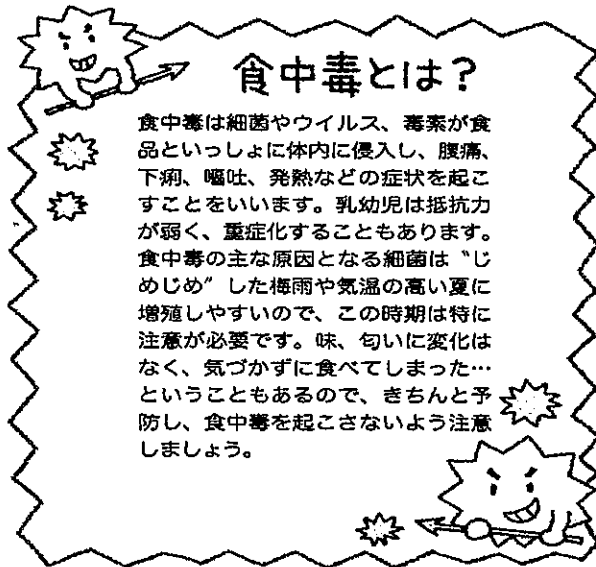 食中毒とは？
食中毒は細菌やウイルス、毒素が食
品といっしょに体内に侵入し、腹痛、
下痢、嘔吐、発熱などの症状を起こ
すことをいいます。乳幼児は抵抗力
が弱く、重症化することもあります。
食中毒の主な原因となる細菌は〝じ
めじめ〟した梅雨や気温の高い夏に
増殖しやすいので、この時期は特に
注意が必要です。味、匂いに変化は
なく、気づかずに食べてしまった…
ということもあるので、きちんと予
防し、食中毒を起こさないよう注意
しましょう。